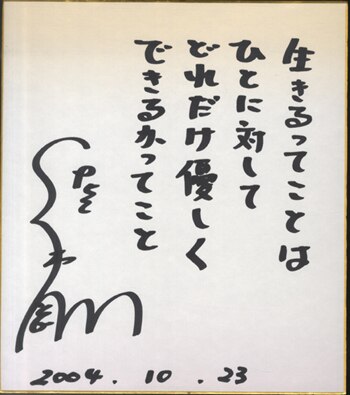 生きるってことは
ひとに対して
どれだけ優しく
できるかってこと
2004.10.23